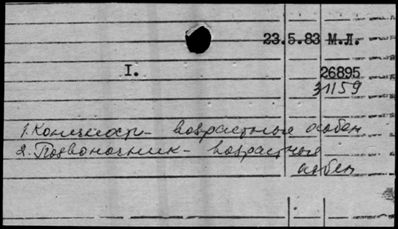 23.5.83 М.Л.
I.
26895
31159
1. Конечности - возрастные особен
2. Позвоночник - возрастные
особен